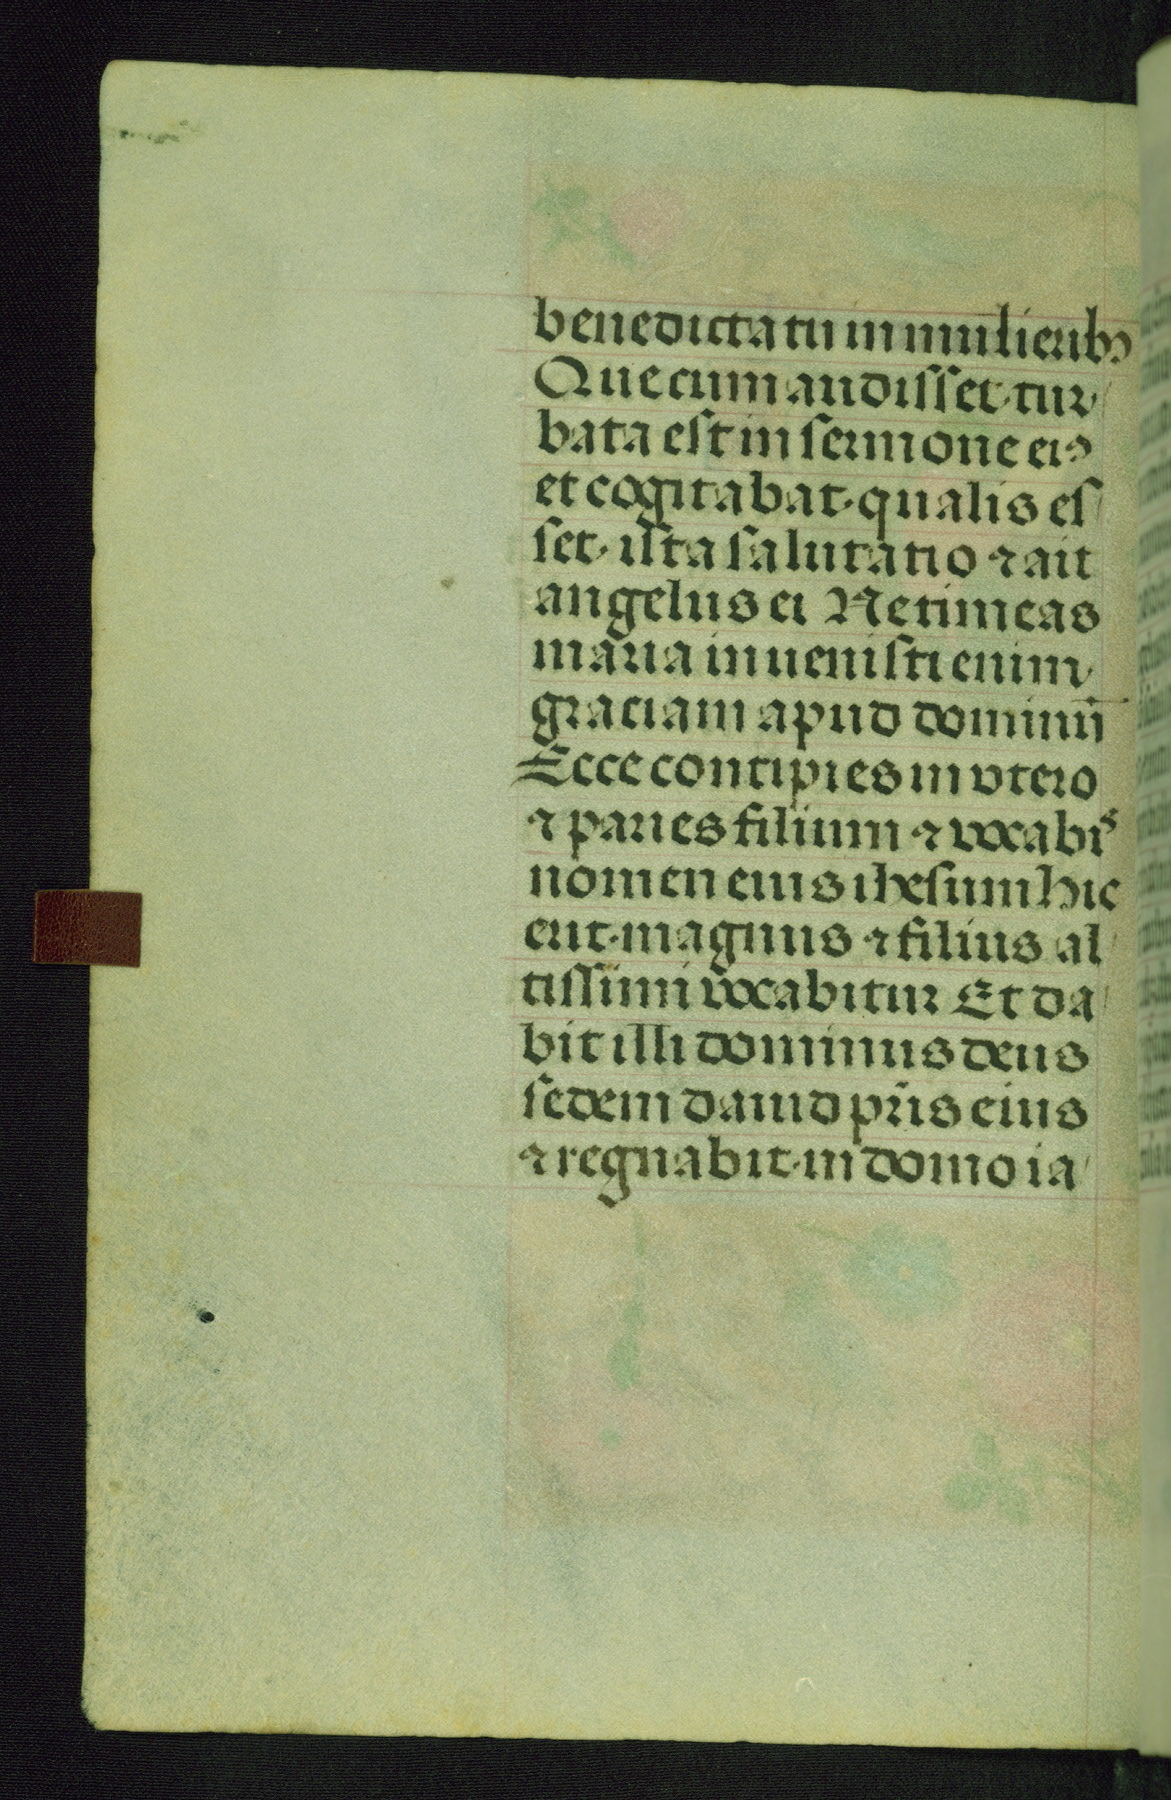 benedicta tu in mulierib9
Que cum audisset tur
bata est in sermone ei9
et cogitabat qualis es
set ista salutatio ⁊ ait
angelus ei Ne timeas
maria invenisti enim
graciam apud dominū
Ecce concipies in vtero
⁊ paries filium ⁊ vocabis
nomen eius ihesum hic
erit magnus ⁊ filius al
tissimi vocabitur Et da
bit illi dominus deus
sedem dauid pr̄is eius
⁊ regnabit in domo ia